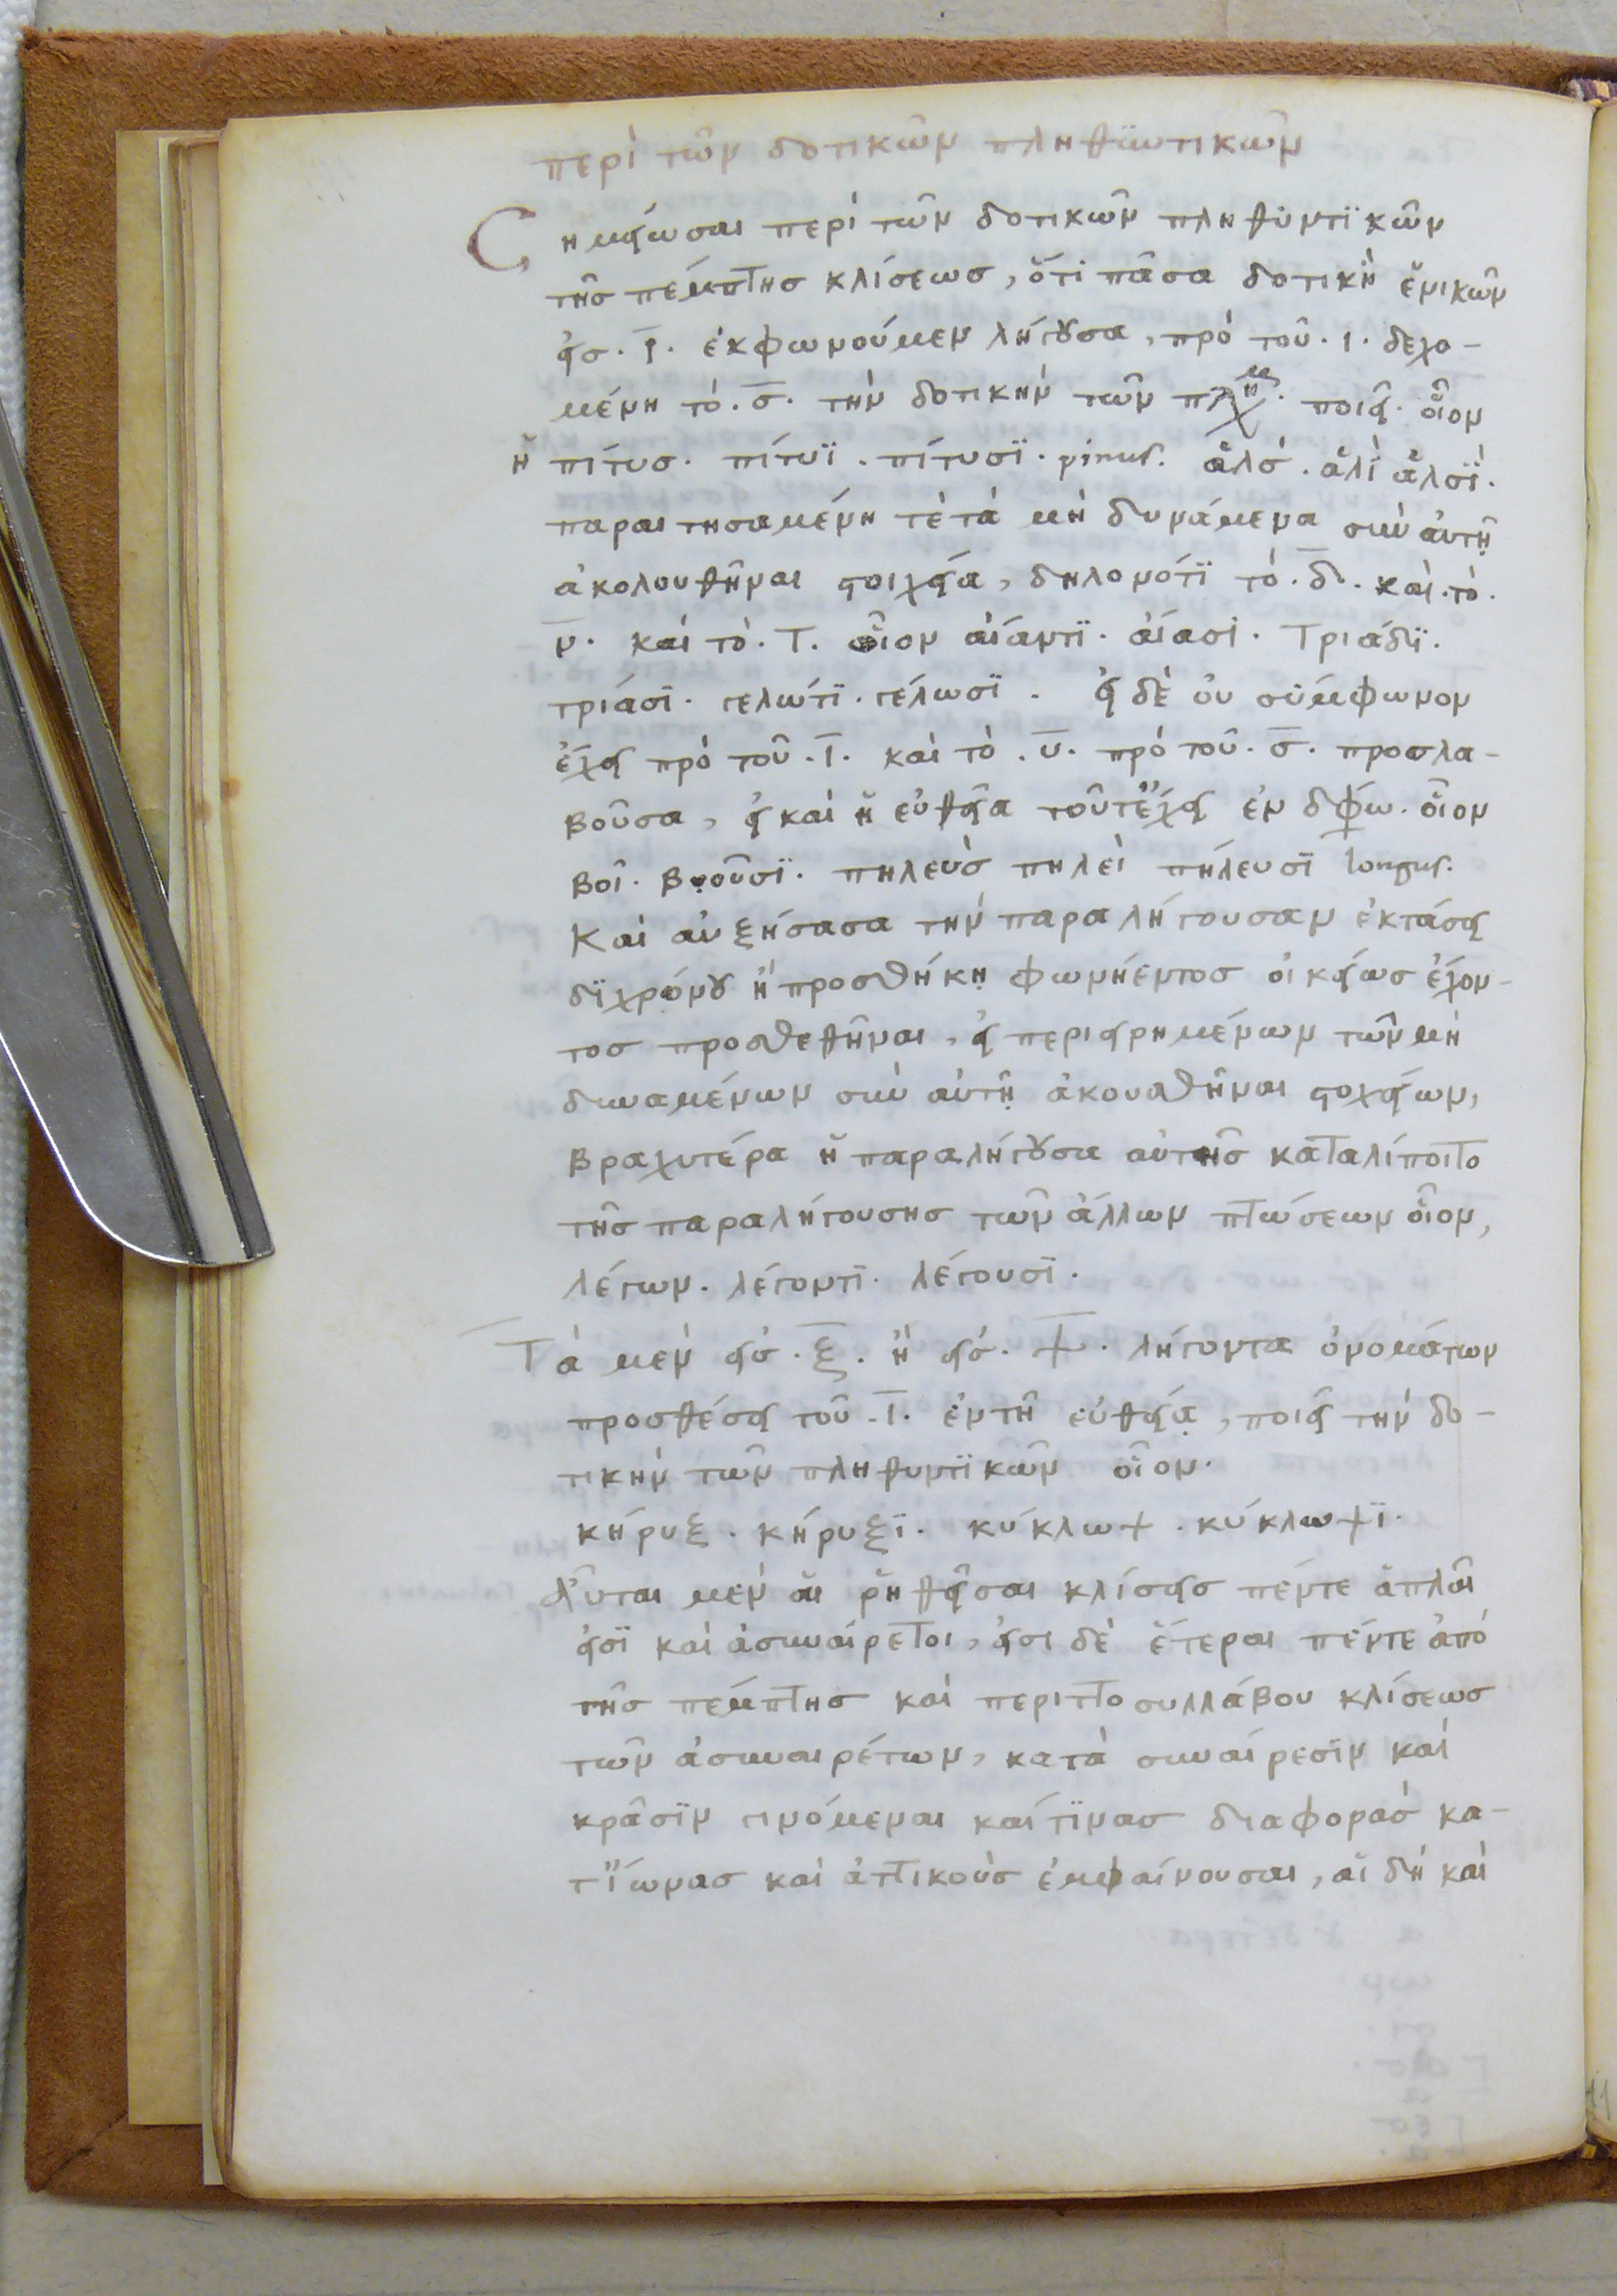 περὶ τῶν δοτικῶν πληθϋντικῶν
Σημείωσαι περὶ τῶν δοτικῶν πληθϋντϊκῶν
τῆς πέμπτης κλίσεως, ὅτι πᾶσα δοτικὴ ἑνικῶν
εἰς · ῑ · ἐκφωνούμεν λήγουσα, πρὸ τοῦ · ι · δεχο-
μένη τὸ · σ̄ · τὴν δοτικὴν τῶν ποιεῖ · οἷον
ἡ πίτυς · πίτυϊ · πίτυσϊ · pinus. ἅλς · ἁλὶ ἁλσϊ ·
παραιτησαμένη τὲ τὰ μὴ δυνάμενα σὺν αὐτῇ
ἀκολουθῆναι στοιχεῖα, δηλονότϊ τὸ · δ̄ · καὶ · τὸ ·
ν̄ · καὶ τὸ · τ · οἷον αἴαντϊ · αἴασι · τριάδϊ ·
τριάσϊ · γελώτϊ · γέλωσϊ · εἰ δὲ οὐ σύμφωνον
ἔχει πρὸ τοῦ · ῑ · καὶ τὸ · ῡ · πρὸ τοῦ · σ̄ · προσλα-
βοῦσα, εἰ καὶ ἡ εὐθεῖα τοῦτ ἔχει ἐν · οἷον
βοῒ · βουσϊ · πηλεὺς πηλεὶ πήλευσϊ longus.
Καὶ αὐξήσασα τὴν παραλήγουσαν ἐκτάσει
δϊχρόνου ἢ προσθήκῃ φωνήεντος οἰκείως ἔχον-
τος προσθεθῆναι, εἰ περιειρημένων τῶν μὴ
δυναμένων σὺν αὐτῇ ἀκουσθῆναι στοχείων,
βραχυτέρα ἡ παραλήγουσα αὐτῆς καταλίποιτο
τῆς παραληγούσης τῶν ἄλλων πτώσεων οἷον,
λέγων · λέγοντϊ · λέγουσϊ ·
Τὰ μὲν εἰς · ξ̄ · ἢ εἰς · ψ̄ · λήγοντα ὀνομάτων
προσθέσει τοῦ · ῑ · ἐν τῇ εὐθείᾳ, ποιεῖ τὴν δο-
τικὴν τῶν πληθυντϊκῶν οἷον ·
κήρυξ · κήρυξϊ · κύκλωψ · κύκλωψϊ ·
Αὗται μὲν αἱ ῥηθεῖσαι κλίσεις πέντε ἁπλαῖ
εἰσϊ καὶ ἀσυναίρετοι, εἰσι δὲ ἕτεραι πέντε ἀπὸ
τῆς πέμπτης καὶ περιττοσυλλάβου κλίσεως
τῶν ἀσυναιρέτων, κατὰ συναίρεσϊν καὶ
κρᾶσϊν γινόμεναι καί τϊνας διαφορὰς κα-
τ ἴωνας καὶ ἀττικοὺς ἐμφαίνουσαι, αἳ δὴ καὶ